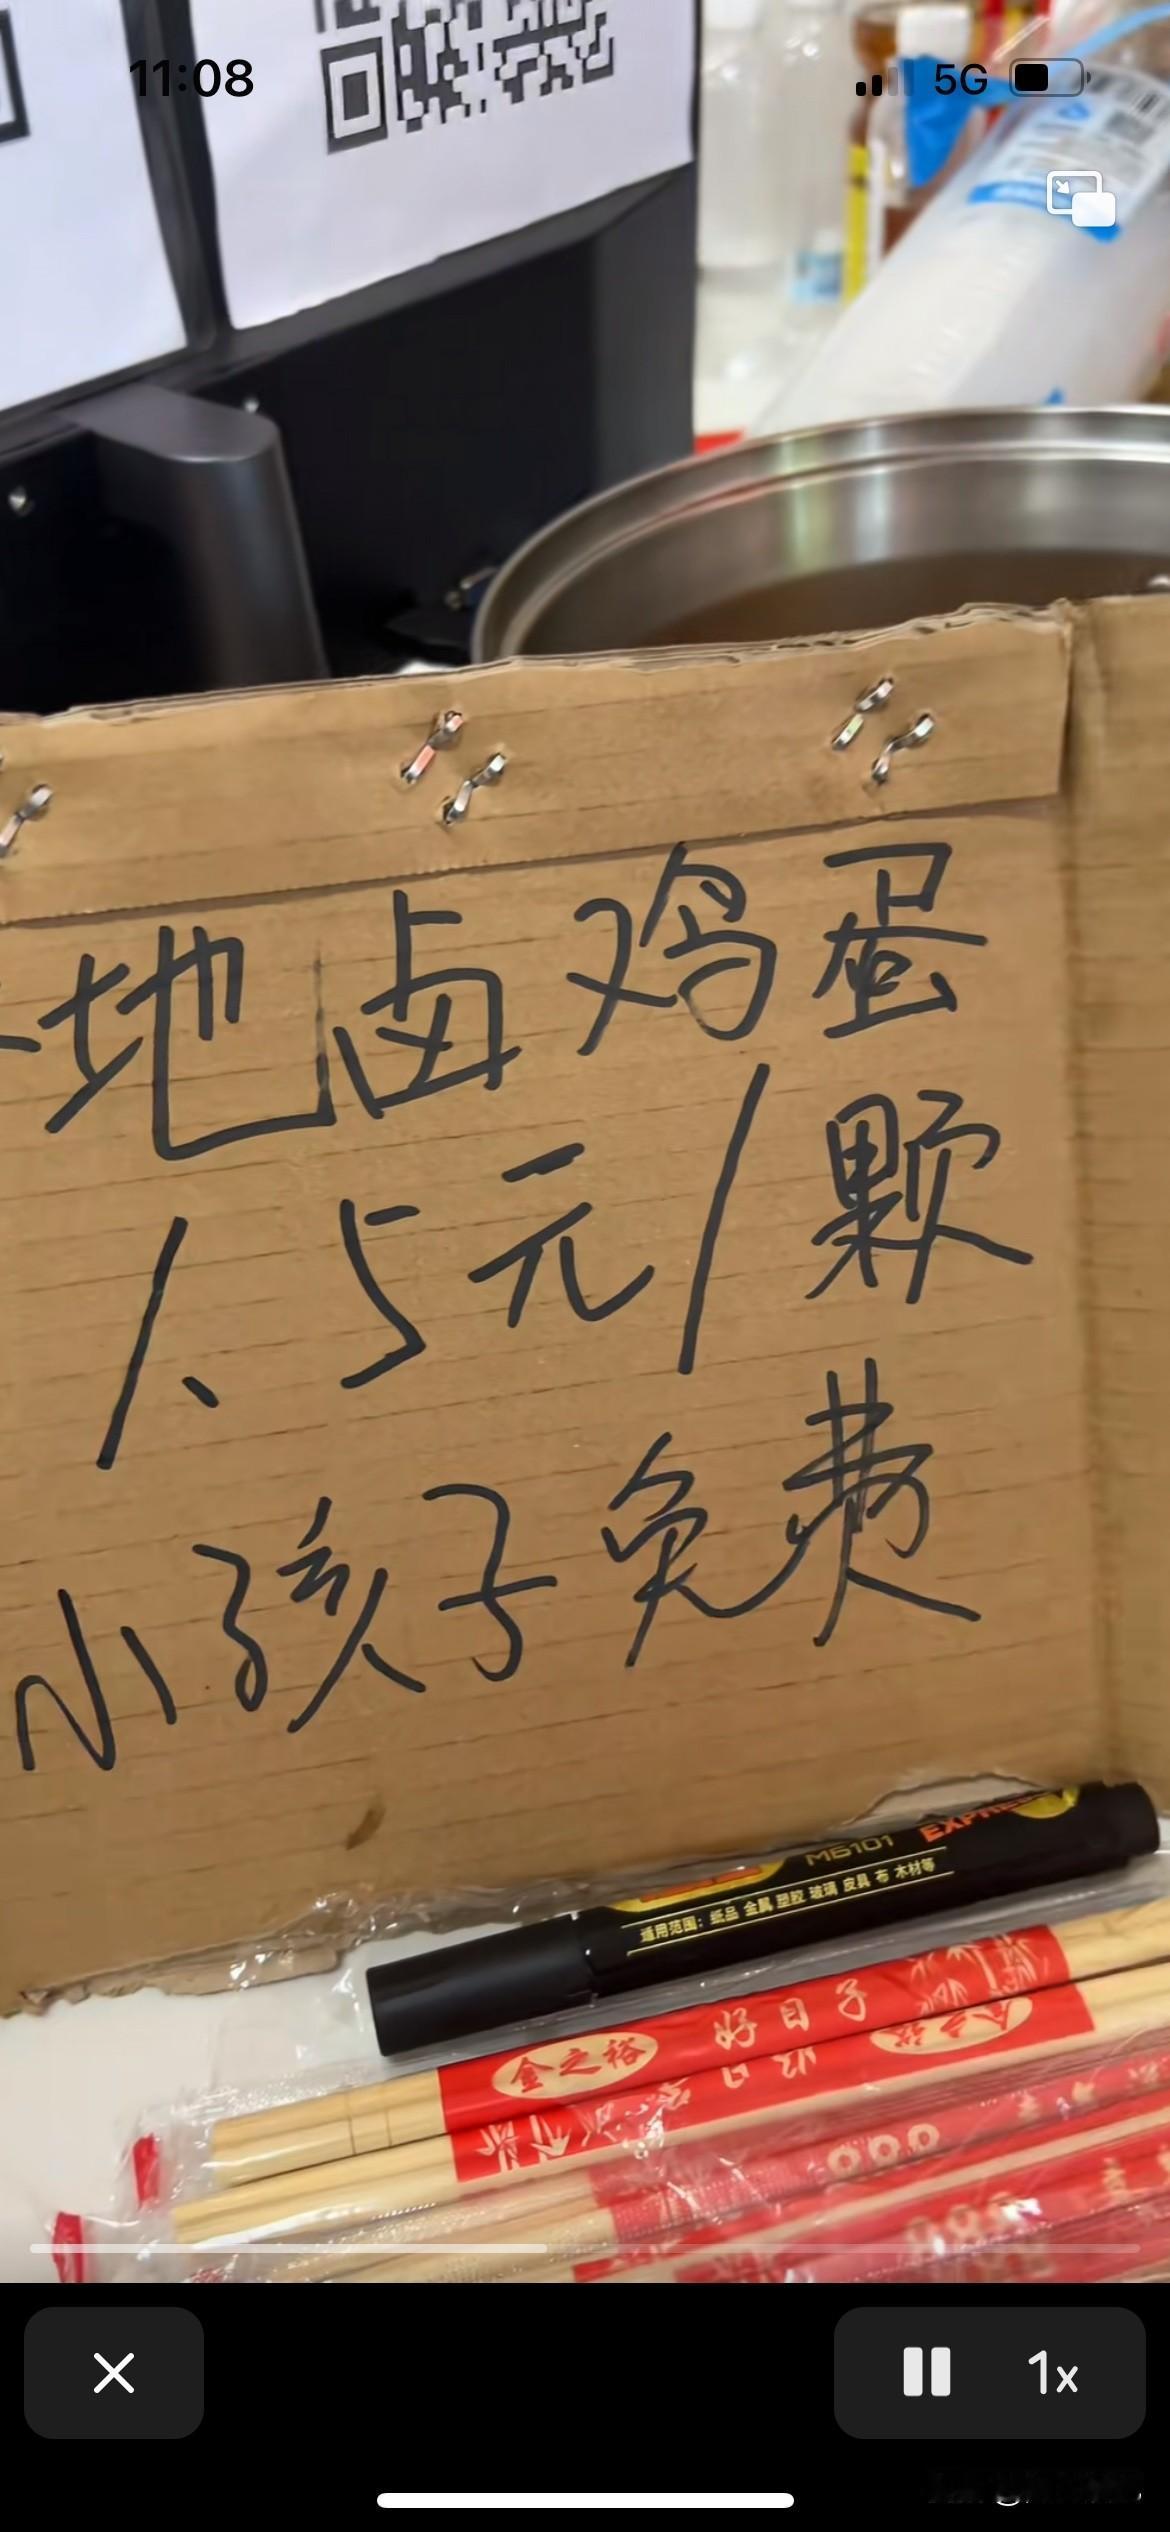 11:08 5G
地卤鸡蛋
1、5元/颗
小孩子免费
M6101 EXPRE
适用范围：纸品 金属 塑胶 玻璃 皮具 布 木材等
金之裕 好日子
1x